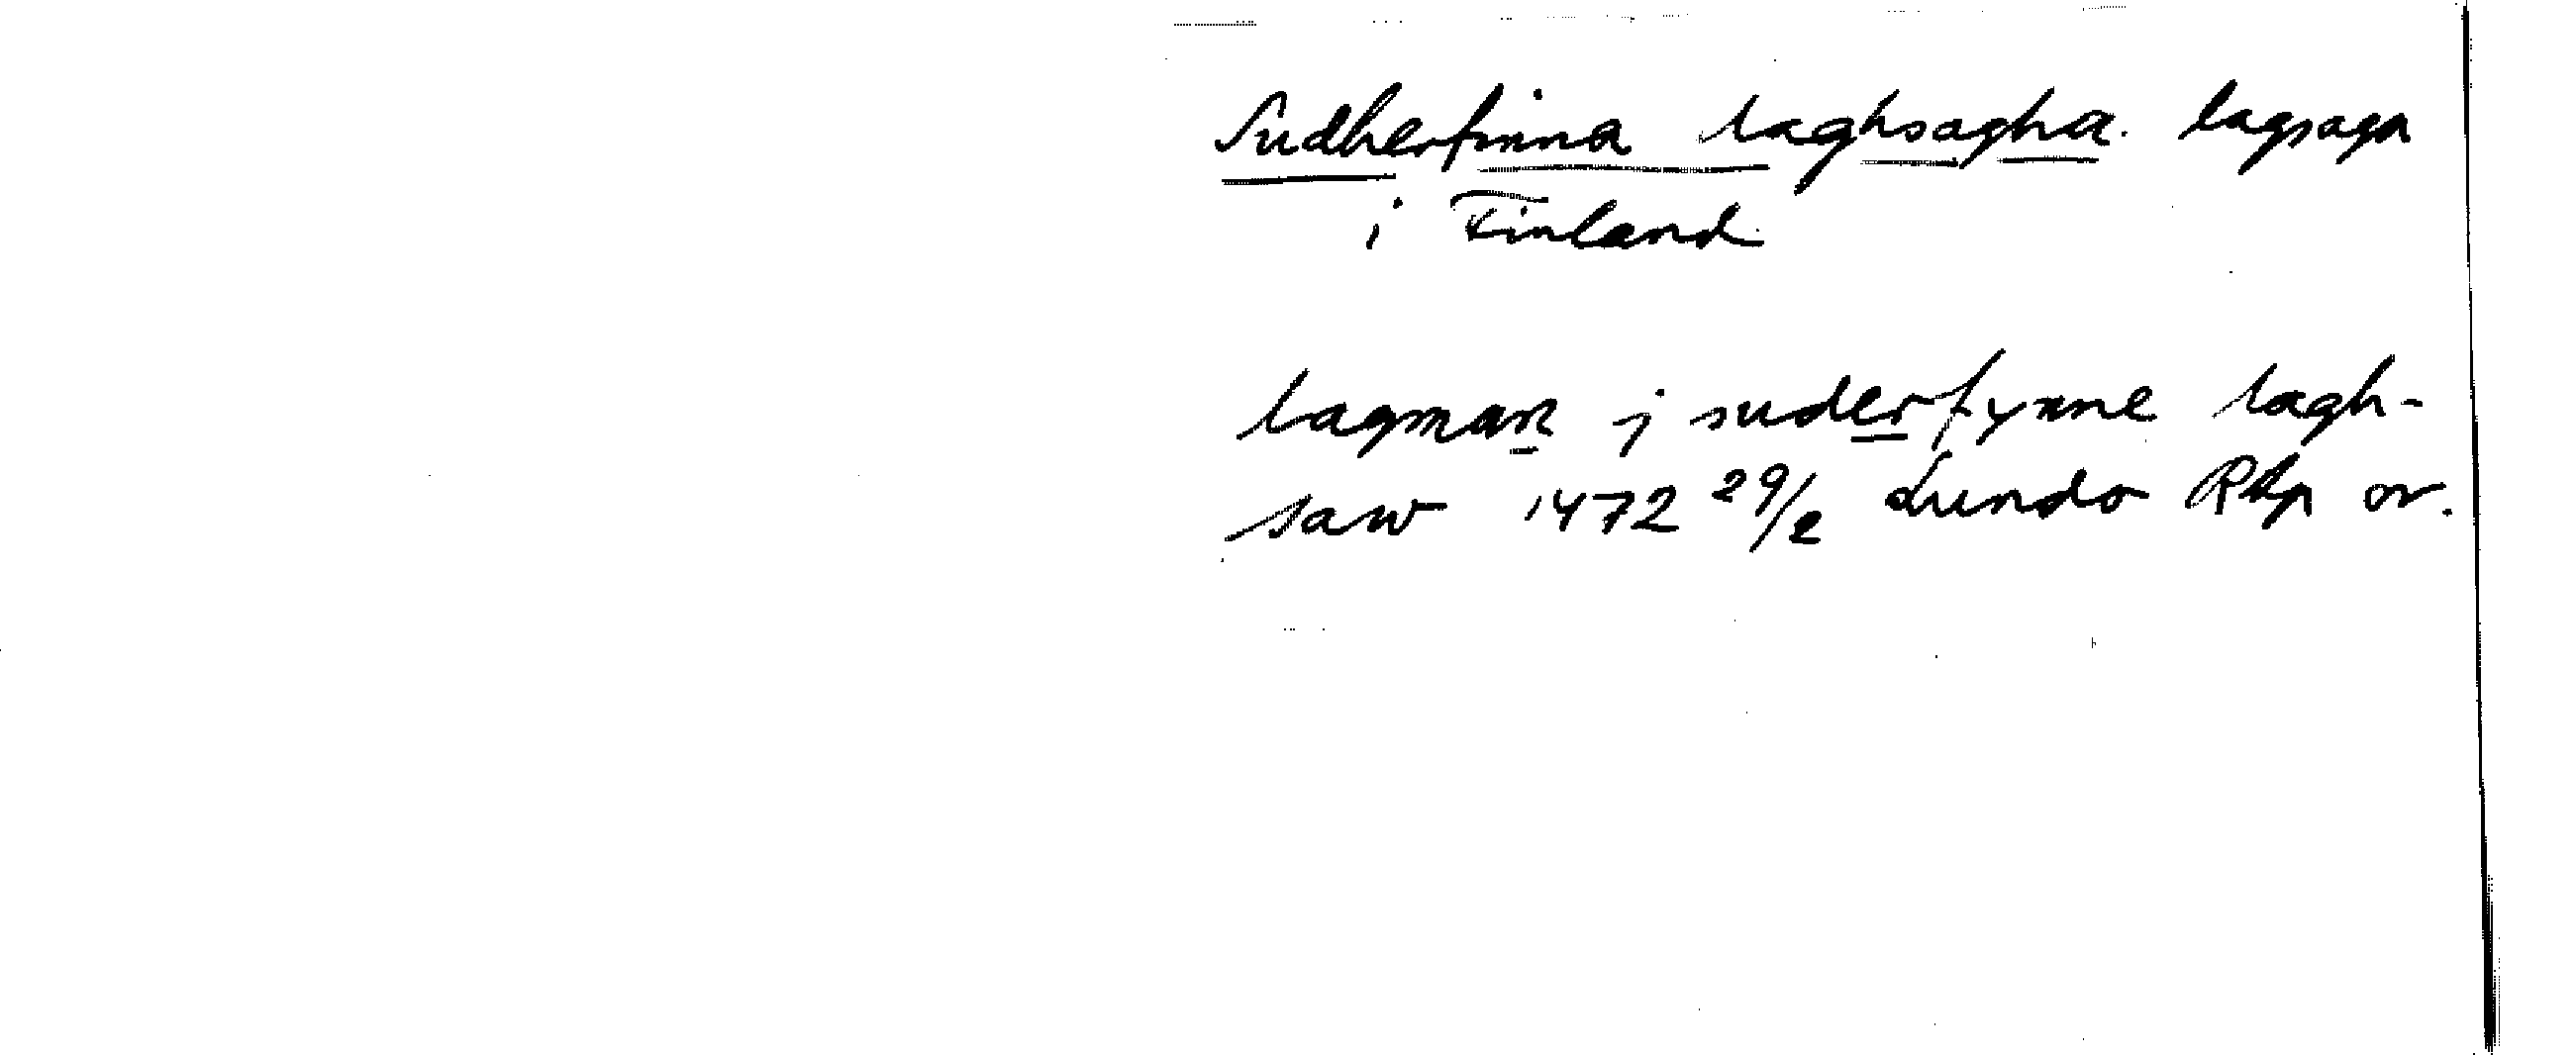 Sudherfinna laghsagha. lagsaga
i Finland
lagman j suderfynne lagh-
saw 1472 29/2 Lundo Rhp or.